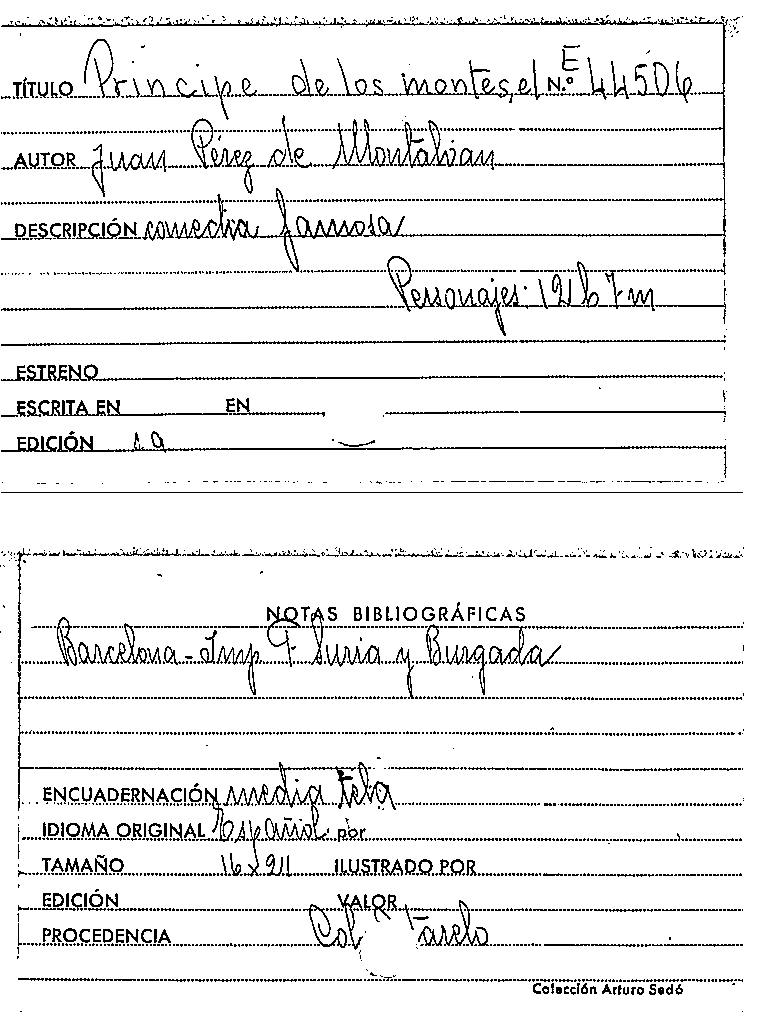 TÍTULO Príncipe de los montes, el N.º E 44506
AUTOR Juan Pérez de Montalván
DESCRIPCIÓN comedia famosa
Personajes: 12 h 7 m
ESTRENO
ESCRITA EN EN
EDICIÓN
NOTAS BIBLIOGRÁFICAS
Barcelona - Imp F Suria y Burgada
ENCUADERNACIÓN media tela
IDIOMA ORIGINAL Español por
TAMAÑO 16 x 211 ILUSTRADO POR
EDICIÓN VALOR
PROCEDENCIA Col
Colección Arturo Sedó